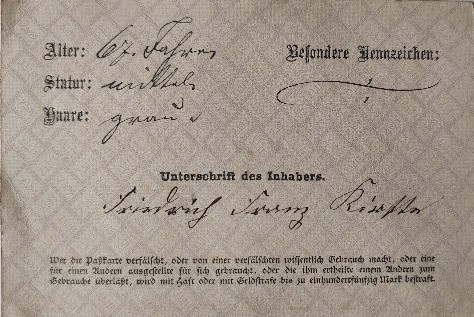 Alter: 67 Jahre
Besondere Kennzeichen:
Statur: mittel
Haare: grau
Unterschrift des Inhabers.
Friedrich Franz Kirste
Wer die Paßkarte verfälscht, oder von einer verfälschten wissentlich Gebrauch macht, oder eine
für einen Andern ausgestellte für sich gebraucht, oder die ihm ertheilte einem Andern zum
Gebrauche überläßt, wird mit Haft oder mit Geldstrafe bis zu einhundertfünfzig Mark bestraft.